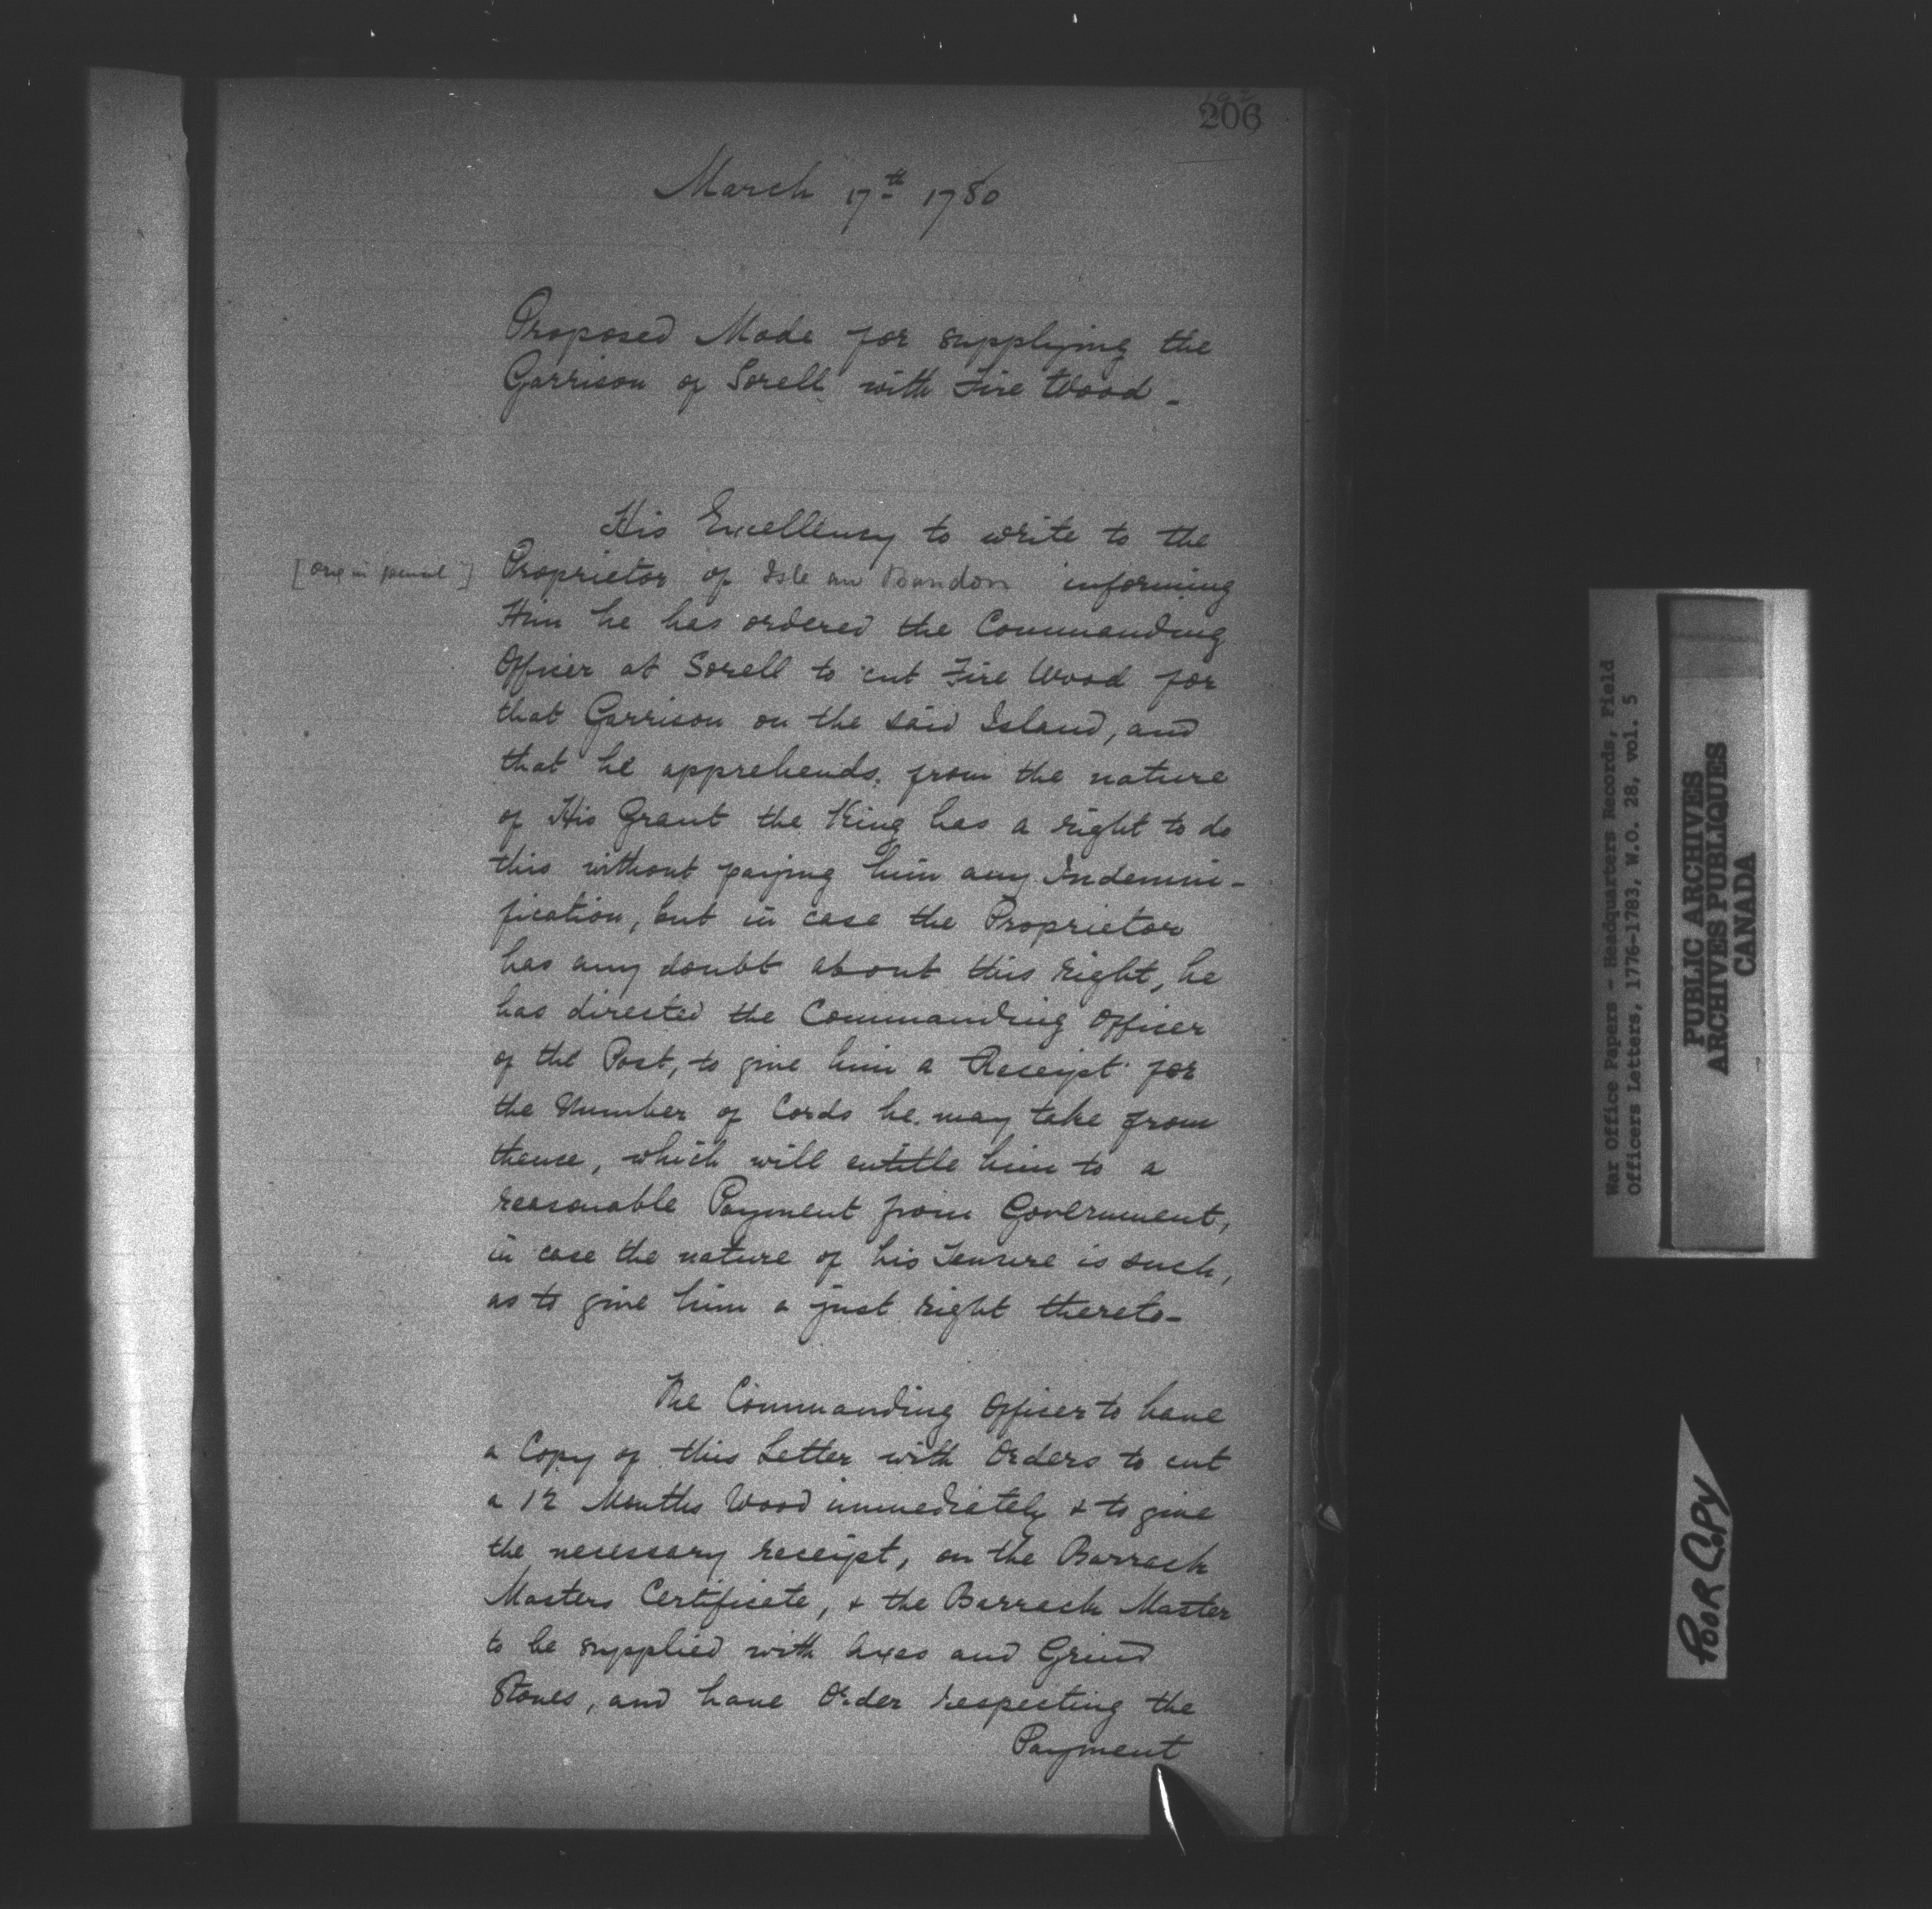 206
March 17th 1780
Proposed Mode for supplying the
Garrison of Sorell with Fire Wood -
His Excellency to write to the
[orig in pencil] Proprietor of Isle au Bandon informing
Him he has ordered the Commanding
Officer at Sorell to cut Fire Wood for
that Garrison on the said Island, and
that he apprehends, from the nature
of His Grant the King has a right to do
this without paying him any Indemni-
fication, but in case the Proprietor
has any doubt about this right, he
has directed the Commanding Officer
of the Post, to give him a Receipt for
the Number of Cords he may take from
thence, which will entitle him to a
reasonable Payment from Government,
in case the nature of his Tenure is such,
as to give him a just right thereto-
The Commanding Officer to have
a Copy of this Letter with Orders to cut
a 12 Months Wood immediately & to give
the necessary receipt, on the Barrack
Masters Certificate, & the Barrack Master
to be supplied with Axes and Grind
Stones, and have Order respecting the
Payment
War Office Papers - Headquarters Records, Field
Officers Letters, 1776-1783, W.O. 28, vol. 5
PUBLIC ARCHIVES
ARCHIVES PUBLIQUES
CANADA
POOR COPY